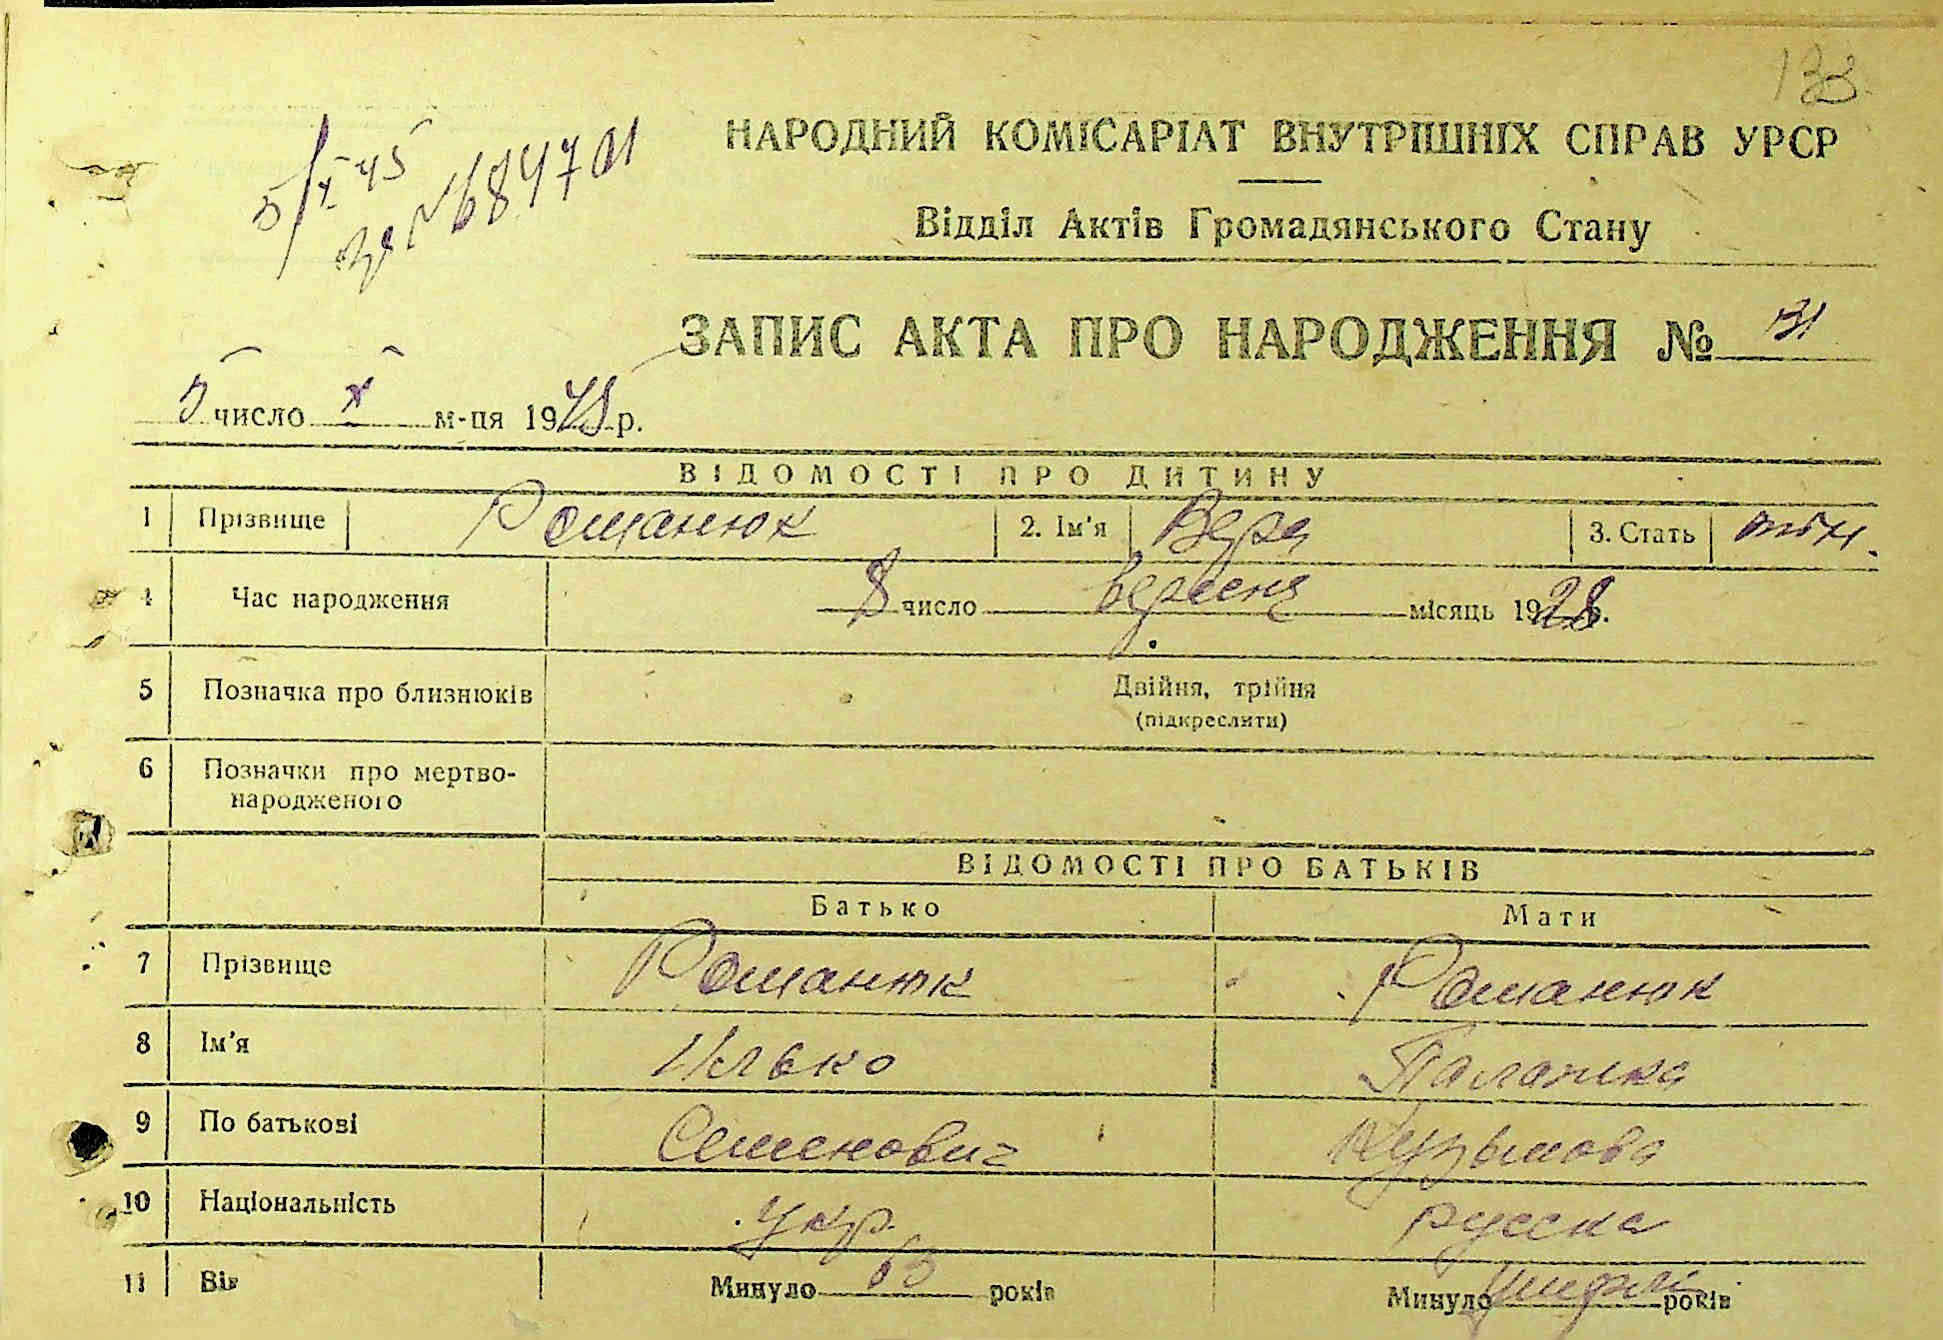 133
5/X 45
за № 684701
НАРОДНИЙ КОМІСАРІАТ ВНУТРІШНІХ СПРАВ УРСР
Відділ Актів Громадянського Стану
ЗАПИС АКТА ПРО НАРОДЖЕННЯ № 131
5 число X м-ця 1945 р.
ВІДОМОСТІ ПРО ДИТИНУ
1 Прізвище Романюк 2. Ім'я Вера 3. Стать жін.
4 Час народження 8 число вересня місяць 1928 р.
5 Позначка про близнюків Двійня, трійня
(підкреслити)
6 Позначки про мертво-
народженого
ВІДОМОСТІ ПРО БАТЬКІВ
Батько Мати
7 Прізвище Романюк Романюк
8 Ім'я Илько Палажка
9 По батькові Семенович Кузьмова
10 Національність укр. русска
11 Вік Минуло років Минуло умерла років